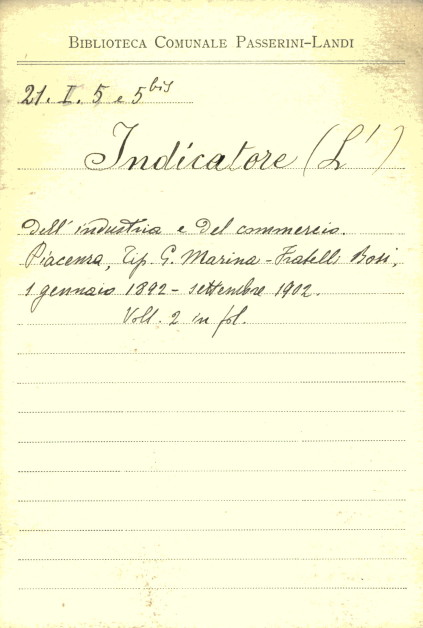 BIBLIOTECA COMUNALE PASSERINI-LANDI
21. I. 5 e 5 bis
Indicatore (L')
dell'industria e del commercio.
Piacenza, Tip. G. Marina - Fratelli Bosi,
1 gennaio 1892 - settembre 1902.
Voll. 2 in fol.